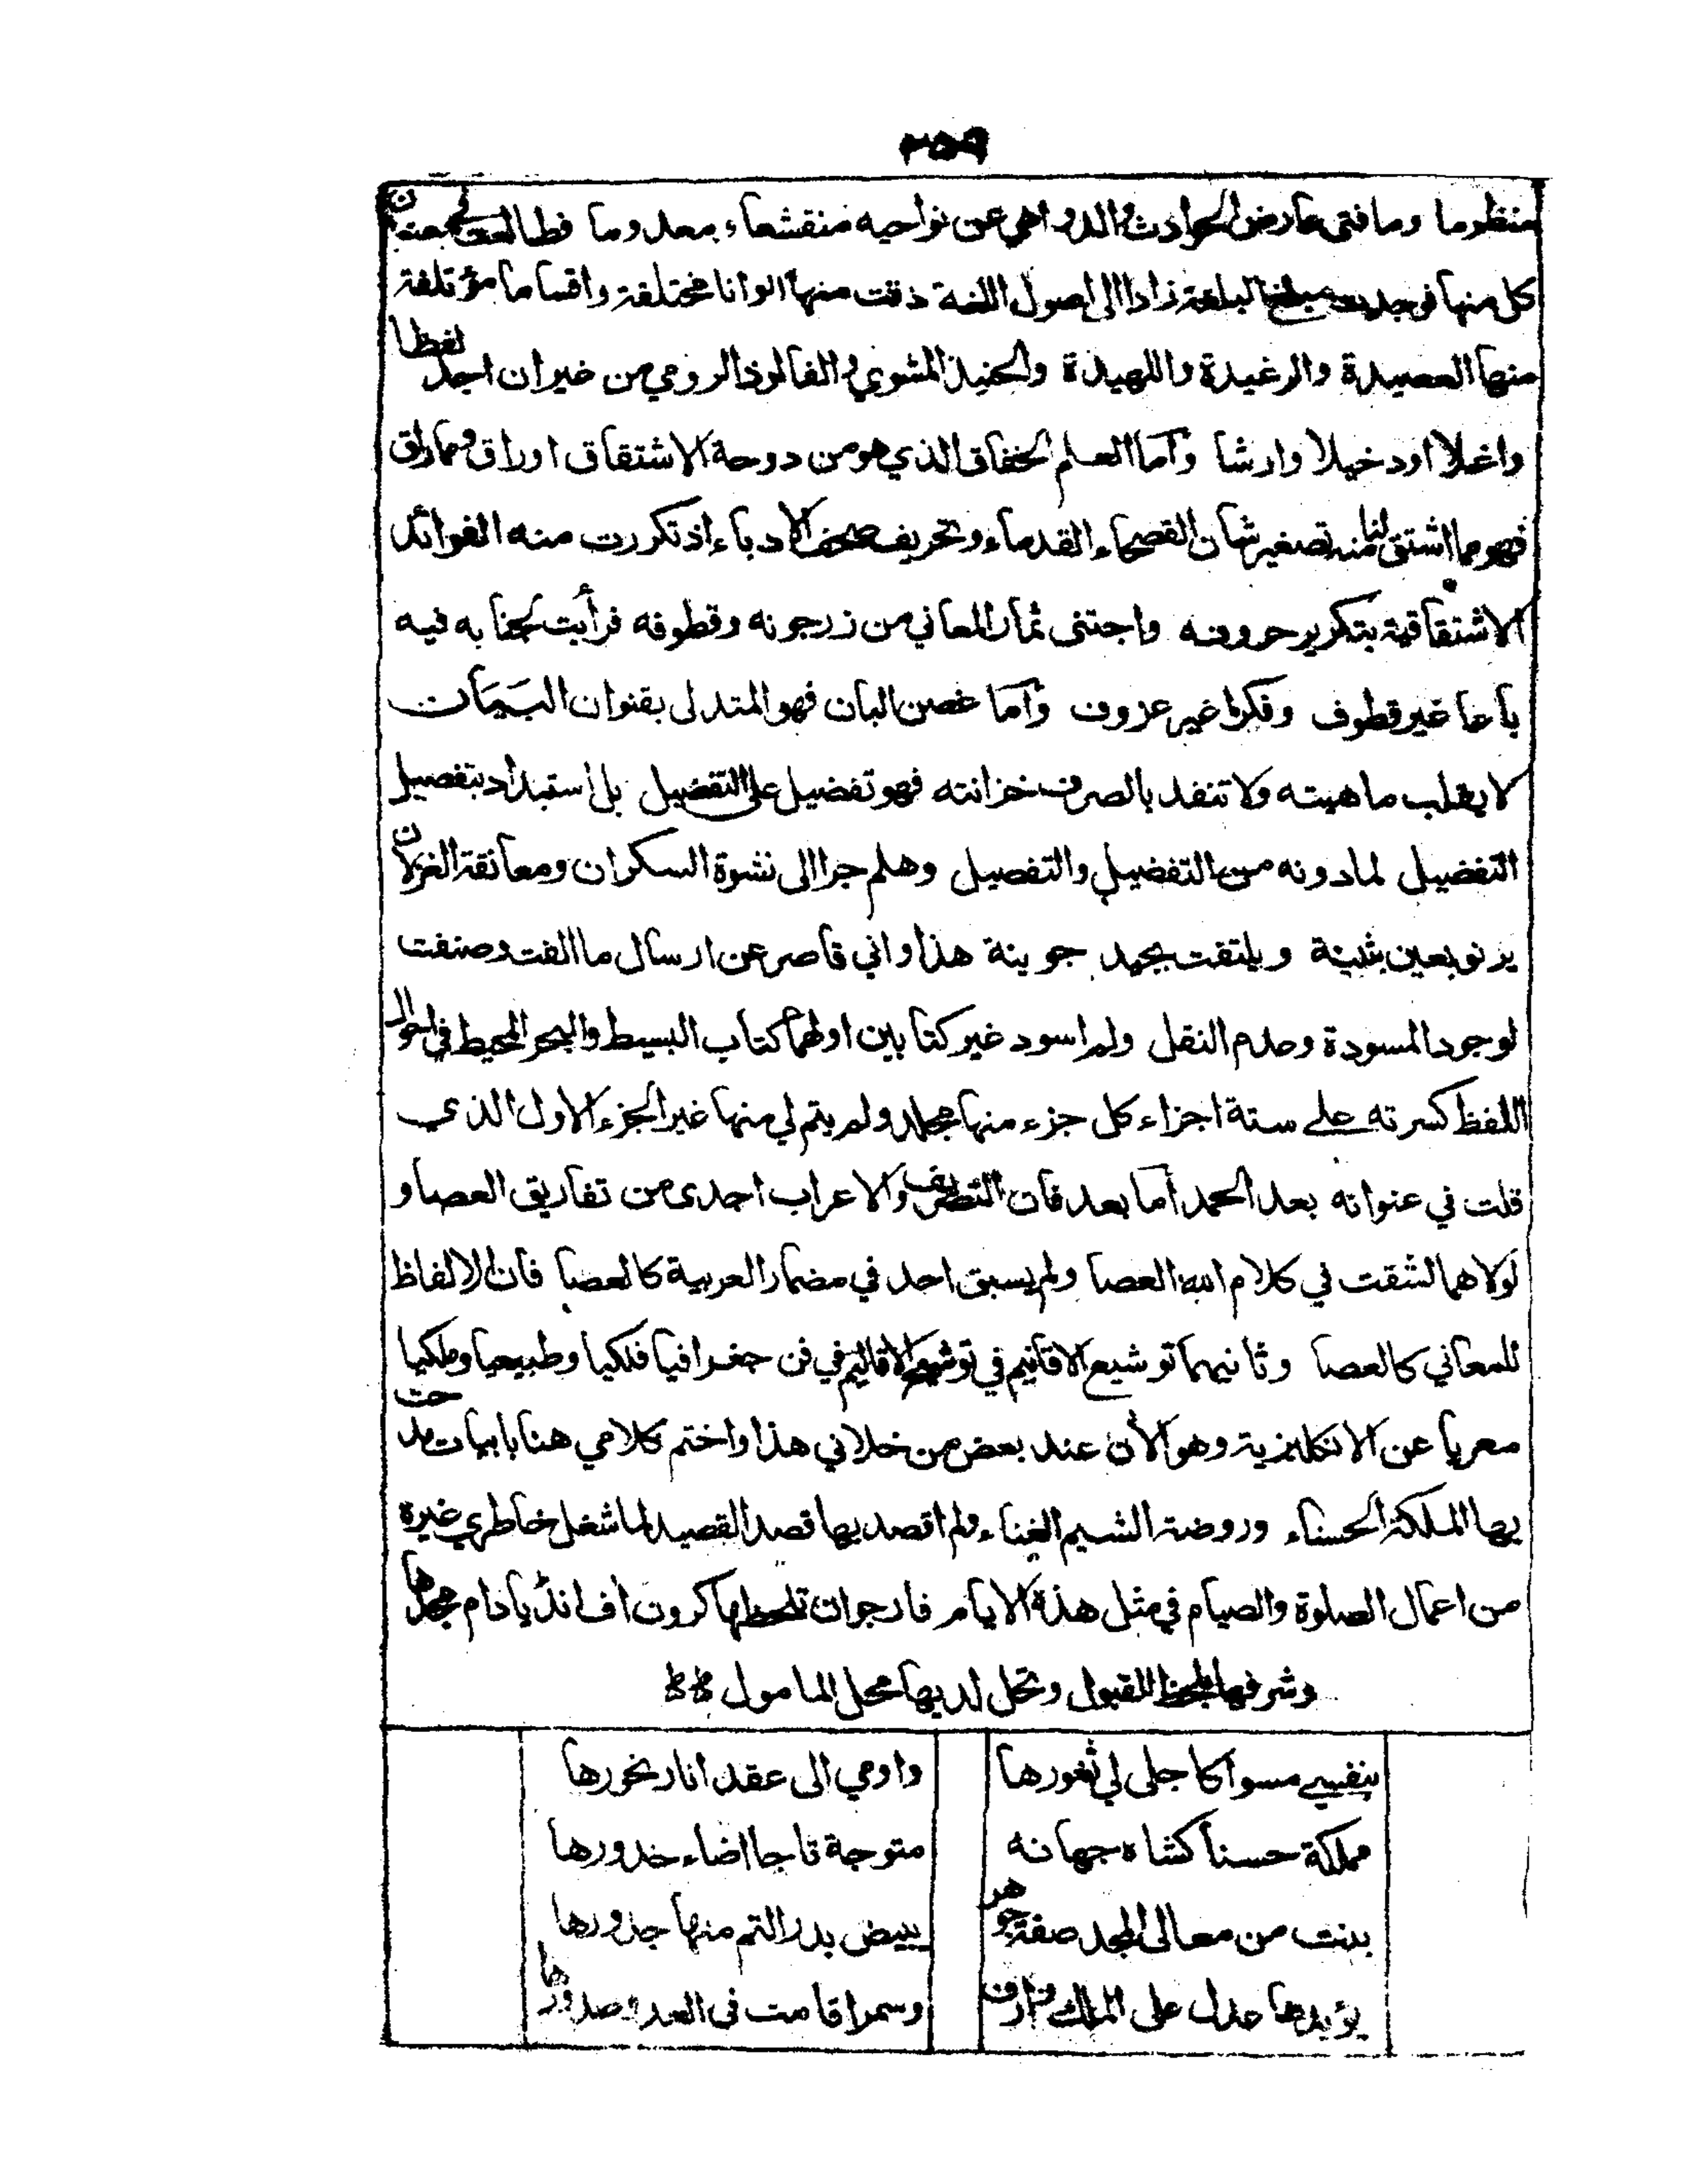 ٣٥٩
منظوما وما فتى عارض الحوادث والدواهي عن نواحيه منقشعا، معدوما فطالعت
كل منها فوجدت البلغة زادا الى اصول اللغة ذقت منها الوانا مختلفة واقساما مؤتلفة
منها العصيدة والرغيدة واللهيدة والحنيذ المشوي والفالوذ الرومي من غير ان اجد لفظا
واغلا او دخيلا وارشا وأما العلم الخفاق الذي هو من دوحة الاشتقاق اوراق
فهو مما اشتق لنا منه تصغير شان الفصحاء القدماء وتحريف صحف الادباء اذ تكررت منه الفوائد
الاشتقاقية بتكرير حروفه واجتنى ثمار المعاني من زرجونه وقطوفه فرأيت لجنابه فيه
باعا غير قطوف وفكرا غير عزوف وأما غصن البان فهو المتدلى بقنوان البَيَمَات
لا يقلب ماهيته ولا تنفد بالصرف خزانته فهو تفضيل على التفضيل بل استبداد بتفصيل
التفضيل لما دونه من التفضيل والتفصيل وهلم جرا الى نشوة السكران ومعانقة الغزلان
يرنو بعين بثينة ويلتفت بجيد جوينة هذا واني قاصر عن ارسال ما الفت وصنفت
لوجود المسودة وعدم النقل ولم اسود غير كتابين اولهما كتاب البسيط والبحر المحيط في احوال
اللفظ كسرته على ستة اجزاء كل جزء منها مجلد ولم يتم لي منها غير الجزء الاول الذي
قلت في عنوانه بعد الحمد أما بعد فان التصريف والاعراب اجدى من تفاريق العصا و
لولاهما لشقت في كلام الله العصا ولم يسبق احد في مضمار العربية كالعصا فان الالفاظ
للمعاني كالعصا وثانيهما توشيع الاقانيم في توشيح الاقاليم في فن جغرافيا فلكيا وطبيعيا وملكيا
معربا عن الانكليزية وهو الأن عند بعض من خلاني هذا واختم كلامي هنا بابيات مدحت
بها الملكة الحسناء وروضة الشيم الغناء ولم اقصد بها قصد القصيد لما شغل خاطري غيره
من اعمال الصلوة والصيام في مثل هذه الايام فارجو ان تلحظها كرون أف انڈيا دام مجدها
وشرفها بلحظ القبول وتحل لديها محل المامول
بنفسي مسواكا جلى لي ثغورها واومي الى عقد انار نحورها
مملكة حسنا كشاه جهانه متوجة تاجا اضاء خدورها
بدنت من معالى المجد صفة جوهر ببيض بدر التم منها جذورها
يؤيدها عدل على الملك وارف وسمر اقامت في العدو صدورها